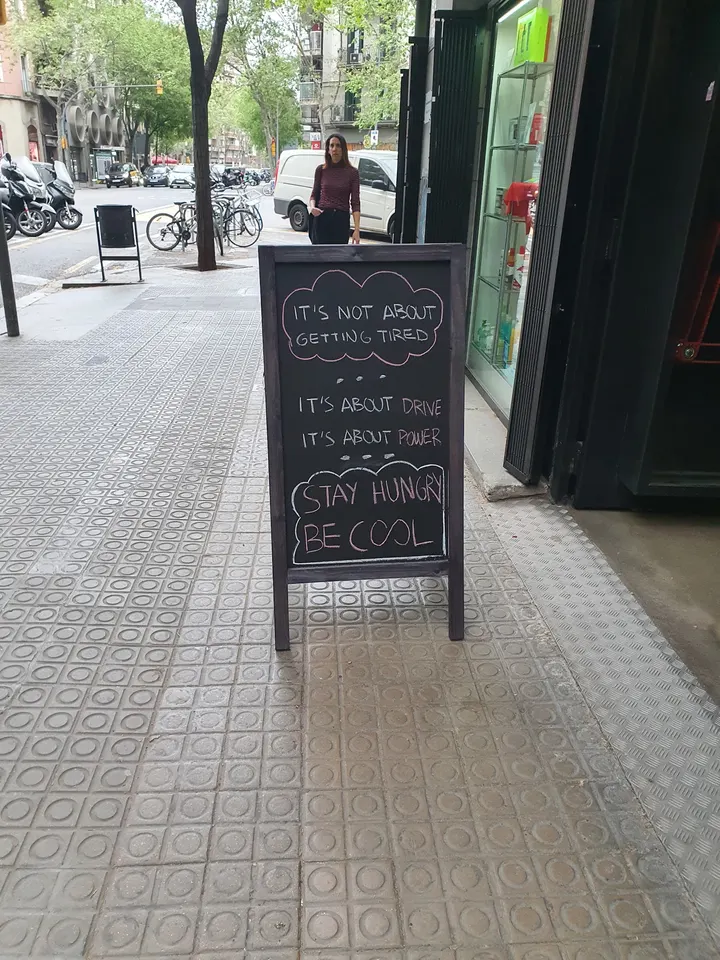 IT'S NOT ABOUT
GETTING TIRED
IT'S ABOUT DRIVE
IT'S ABOUT POWER
STAY HUNGRY
BE COOL